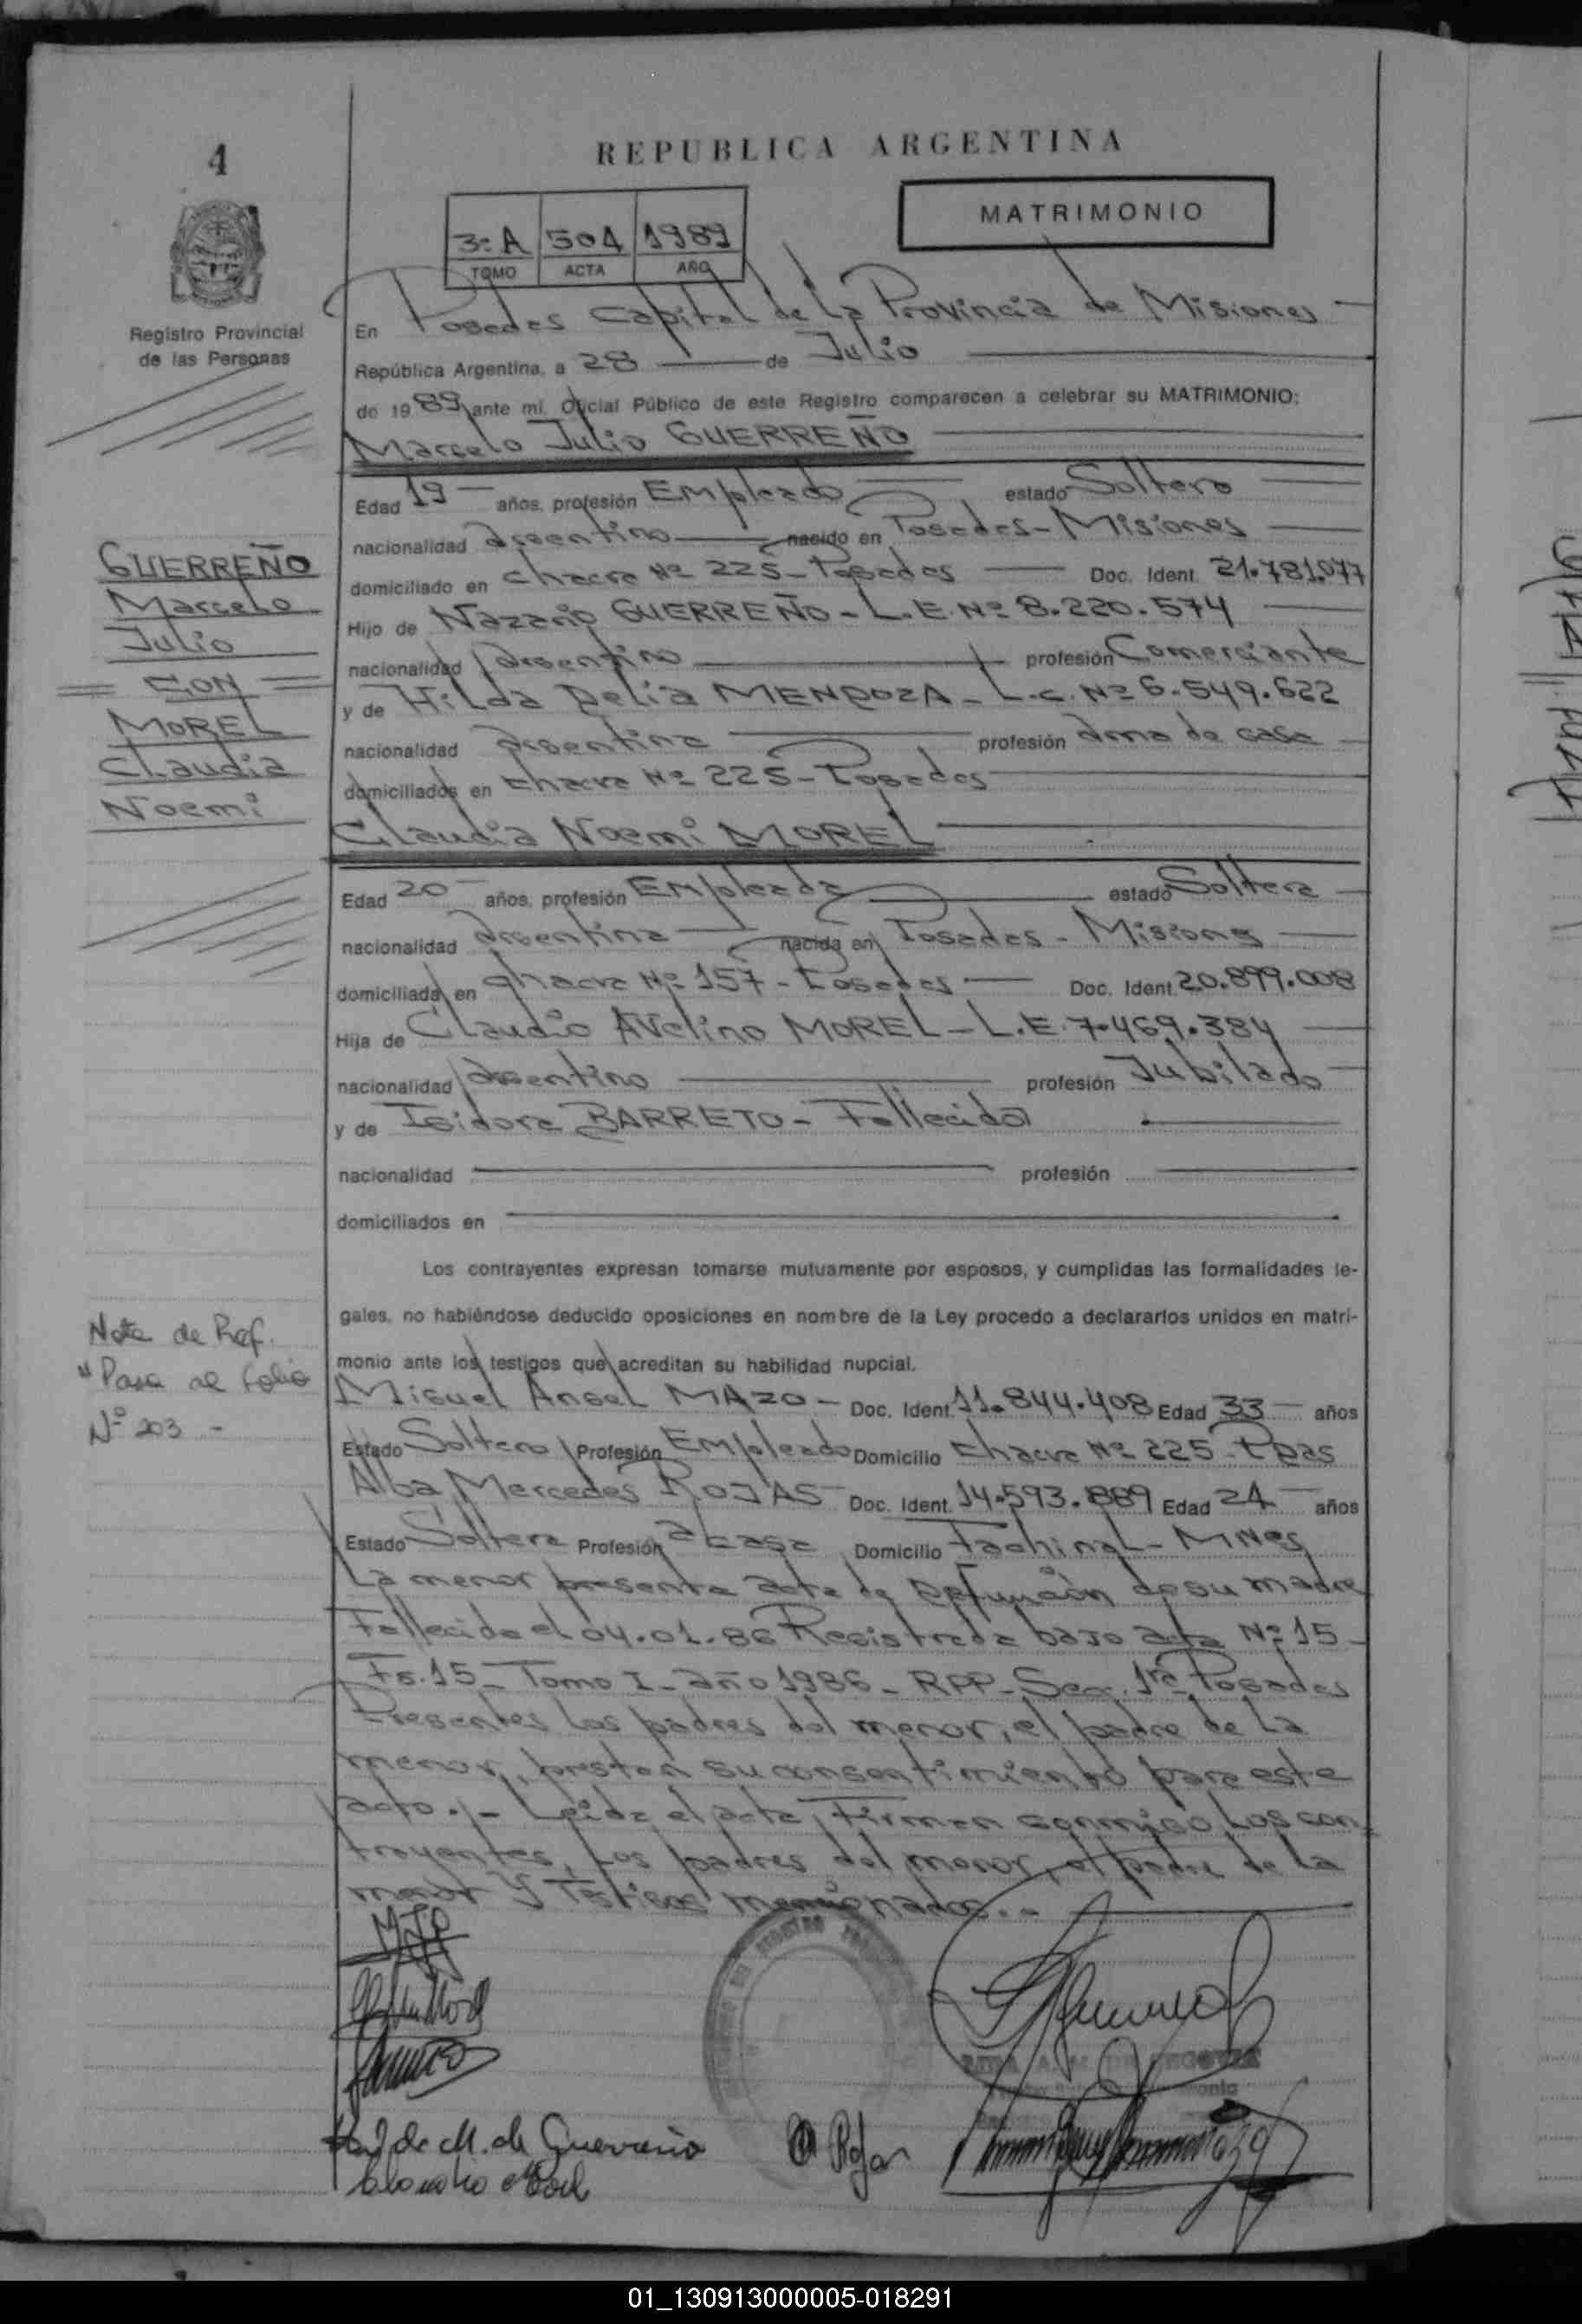 4
REPUBLICA ARGENTINA
MATRIMONIO
3:A 504 1989
TOMO ACTA AÑO
Registro Provincial
de las Personas
En Posadas Capital de La Provincia de Misiones
República Argentina, a 28 de Julio
de 1989 ante mí, Oficial Público de este Registro comparecen a celebrar su MATRIMONIO:
Marcelo Julio GUERREÑO
Edad 19 años, profesión Empleado estado Soltero
nacionalidad argentino nacido en Posadas - Misiones
domiciliado en chacra Nº 225 - Posadas Doc. Ident. 21.781.077
Hijo de Nazario GUERREÑO - L.E. Nº 8.220.574
nacionalidad argentino profesión Comerciante
y de Hilda Delia MENDOZA - L.C. Nº 6.549.622
nacionalidad argentina profesión ama de casa
domiciliados en chacra Nº 225 - Posadas
GUERREÑO
Marcelo
Julio
CON
MOREL
Claudia
Noemi
Claudia Noemi MOREL
Edad 20 años, profesión Empleada estado Soltera
nacionalidad argentina nacida en Posadas - Misiones
domiciliada en chacra Nº 157 - Posadas Doc. Ident. 20.899.008
Hija de Claudio Avelino MOREL - L.E. 7.469.384
nacionalidad argentino profesión Jubilado
y de Isidora BARRETO - Fallecida
nacionalidad profesión
domiciliados en
Los contrayentes expresan tomarse mutuamente por esposos, y cumplidas las formalidades le-
gales, no habiéndose deducido oposiciones en nombre de la Ley procedo a declararlos unidos en matri-
monio ante los testigos que acreditan su habilidad nupcial.
Nota de Ref.
"Pasa al folio
Nº 203 -
Miguel Angel MAZO - Doc. Ident. 11.844.408 Edad 33 años
Estado Soltero Profesión Empleado Domicilio chacra Nº 225 - Pdas
Alba Mercedes ROJAS Doc. Ident. 14.593.889 Edad 24 años
Estado Soltera Profesión a casa Domicilio Fachinal - Mnes
La menor presenta acta de Defunción de su madre
Fallecida el 04.01.86 Registrada bajo acta Nº 15
Fs. 15 - Tomo I - año 1986 - RPP - Secc. 1ra Posadas
Presentes los padres del menor, el padre de la
menor, prestan su consentimiento para este
acto. - Leida el acta, Firman conmigo los con
trayentes, los padres del menor, el padre de la
menor y Testigos mencionados. -
Hilda M. de Guerreño
Claudio Morel
A Rojas
01_130913000005-018291